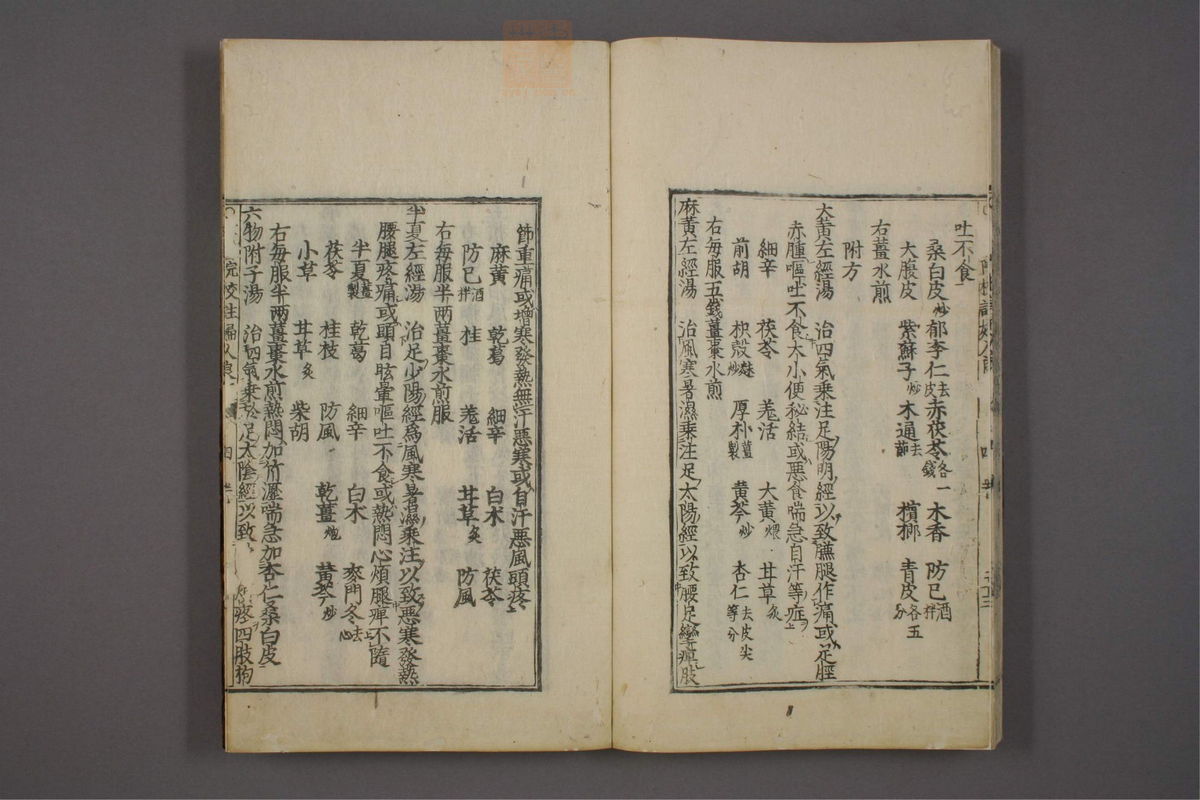 吐不食
桑白皮炒 郁李仁去皮 赤茯苓各一錢 木香 防已酒拌
大腹皮 紫蘇子炒 木通去節 檳榔 青皮各五分
右薑水煎
附方
大黃左經湯 治四氣乘注足陽明經以致腰腿作痛或足脛
赤腫嘔吐不食大小便秘結或悪食喘急自汗等症
細辛 茯苓 羗活 大黃煨 甘草炙
前胡 枳殻麩炒 厚朴薑製 黄芩炒 杏仁去皮尖等分
右每服五錢薑棗水煎
麻黃左經湯 治風寒暑濕乘注足太陽經以致腰足攣痺肢
節重痛或增寒發熱無汗悪寒或自汗悪風頭疼
麻黃 乾葛 細辛 白朮 茯苓
防已酒拌 桂 羗活 甘草炙 防風
右每服半兩薑棗水煎服
半夏左經湯 治足少陽經為風寒暑濕乘注以致悪寒發熱
腰腿疼痛或頭目眩暈嘔吐不食或熱悶心煩腿痺不隨
半夏薑製 乾葛 細辛 白朮 麥門冬去心
茯苓 桂枝 防風 乾薑炮 黃芩炒
小草 甘草炙 柴胡
右每服半兩薑棗水煎熱悶加竹瀝喘急加杏仁桑白皮
六物附子湯 治四氣乘於足太陰經以致 疼四肢拘
院校註婦人良 四